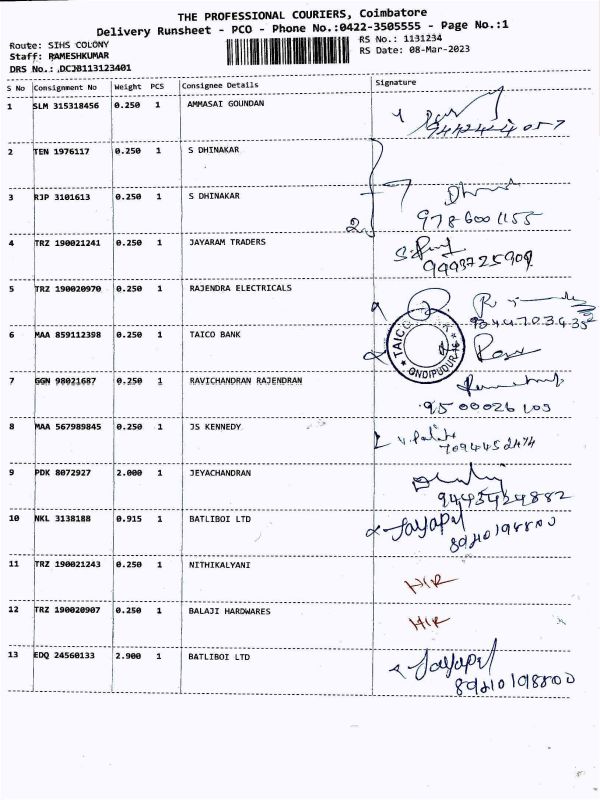 THE PROFESSIONAL COURIERS, Coimbatore
Delivery Runsheet - PCO - Phone No.:0422-3505555 - Page No.:1
Route: SIHS COLONY
RS No.: 1131234
Staff: RAMESHKUMAR
RS Date: 08-Mar-2023
DRS No.: DCJB113123401
S No Consignment No Weight PCS Consignee Details Signature
1 SLM 315318456 0.250 1 AMMASAI GOUNDAN
2 TEN 1976117 0.250 1 S DHINAKAR
3 RJP 3101613 0.250 1 S DHINAKAR
9786001155
4 TRZ 190021241 0.250 1 JAYARAM TRADERS
5 TRZ 190020970 0.250 1 RAJENDRA ELECTRICALS
6 MAA 859112398 0.250 1 TAICO BANK
TAICO
ONDIPUDUR
7 GGN 98021687 0.250 1 RAVICHANDRAN RAJENDRAN
9500026103
8 MAA 567989845 0.250 1 JS KENNEDY
9 PDK 8072927 2.000 1 JEYACHANDRAN
10 NKL 3138188 0.915 1 BATLIBOI LTD
Jayapal
11 TRZ 190021243 0.250 1 NITHIKALYANI
H/R
12 TRZ 190020907 0.250 1 BALAJI HARDWARES
H/R
13 EDQ 24560133 2.900 1 BATLIBOI LTD
Jayapal